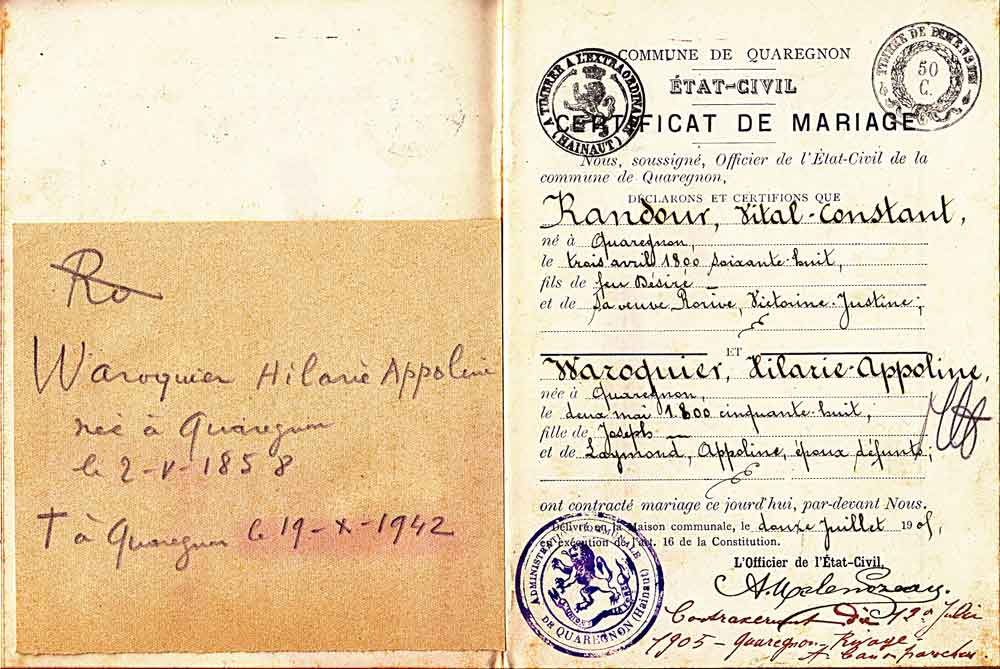 Ro
Waroquier Hilarie Appoline
née à Quaregnon
le 2-V-1858
† à Quaregnon le 19-X-1942
COMMUNE DE QUAREGNON
ÉTAT-CIVIL
CERTIFICAT DE MARIAGE
A TIMBRER A L'EXTRAORDINAIRE
(HAINAUT)
TIMBRE DE DIMENSION
50
C.
Nous, soussigné, Officier de l'État-Civil de la
commune de Quaregnon,
DÉCLARONS ET CERTIFIONS QUE
Randour, Vital-Constant,
né à Quaregnon,
le trois avril 1800 soixante-huit,
fils de feu Désiré
et de sa veuve Rorive, Victorine-Justine;
ET
Waroquier, Hilarie-Appoline,
née à Quaregnon,
le deux mai 1800 cinquante-huit,
fille de Joseph
et de Laymond, Appoline, époux défunts;
ont contracté mariage ce jourd'hui, par-devant Nous.
Délivré en la Maison communale, le douze Juillet 1905,
en exécution de l'art. 16 de la Constitution.
L'Officier de l'État-Civil,
ADMINISTRATION COMMUNALE
DE QUAREGNON (Hainaut)
die 12a Julii
1905 - Quaregnon-Rivage